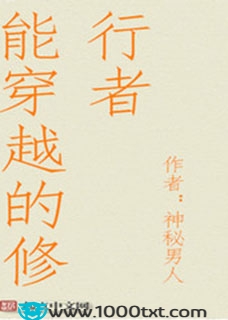 能穿越的修
行者
作者：神秘男人
www.1000txt.com